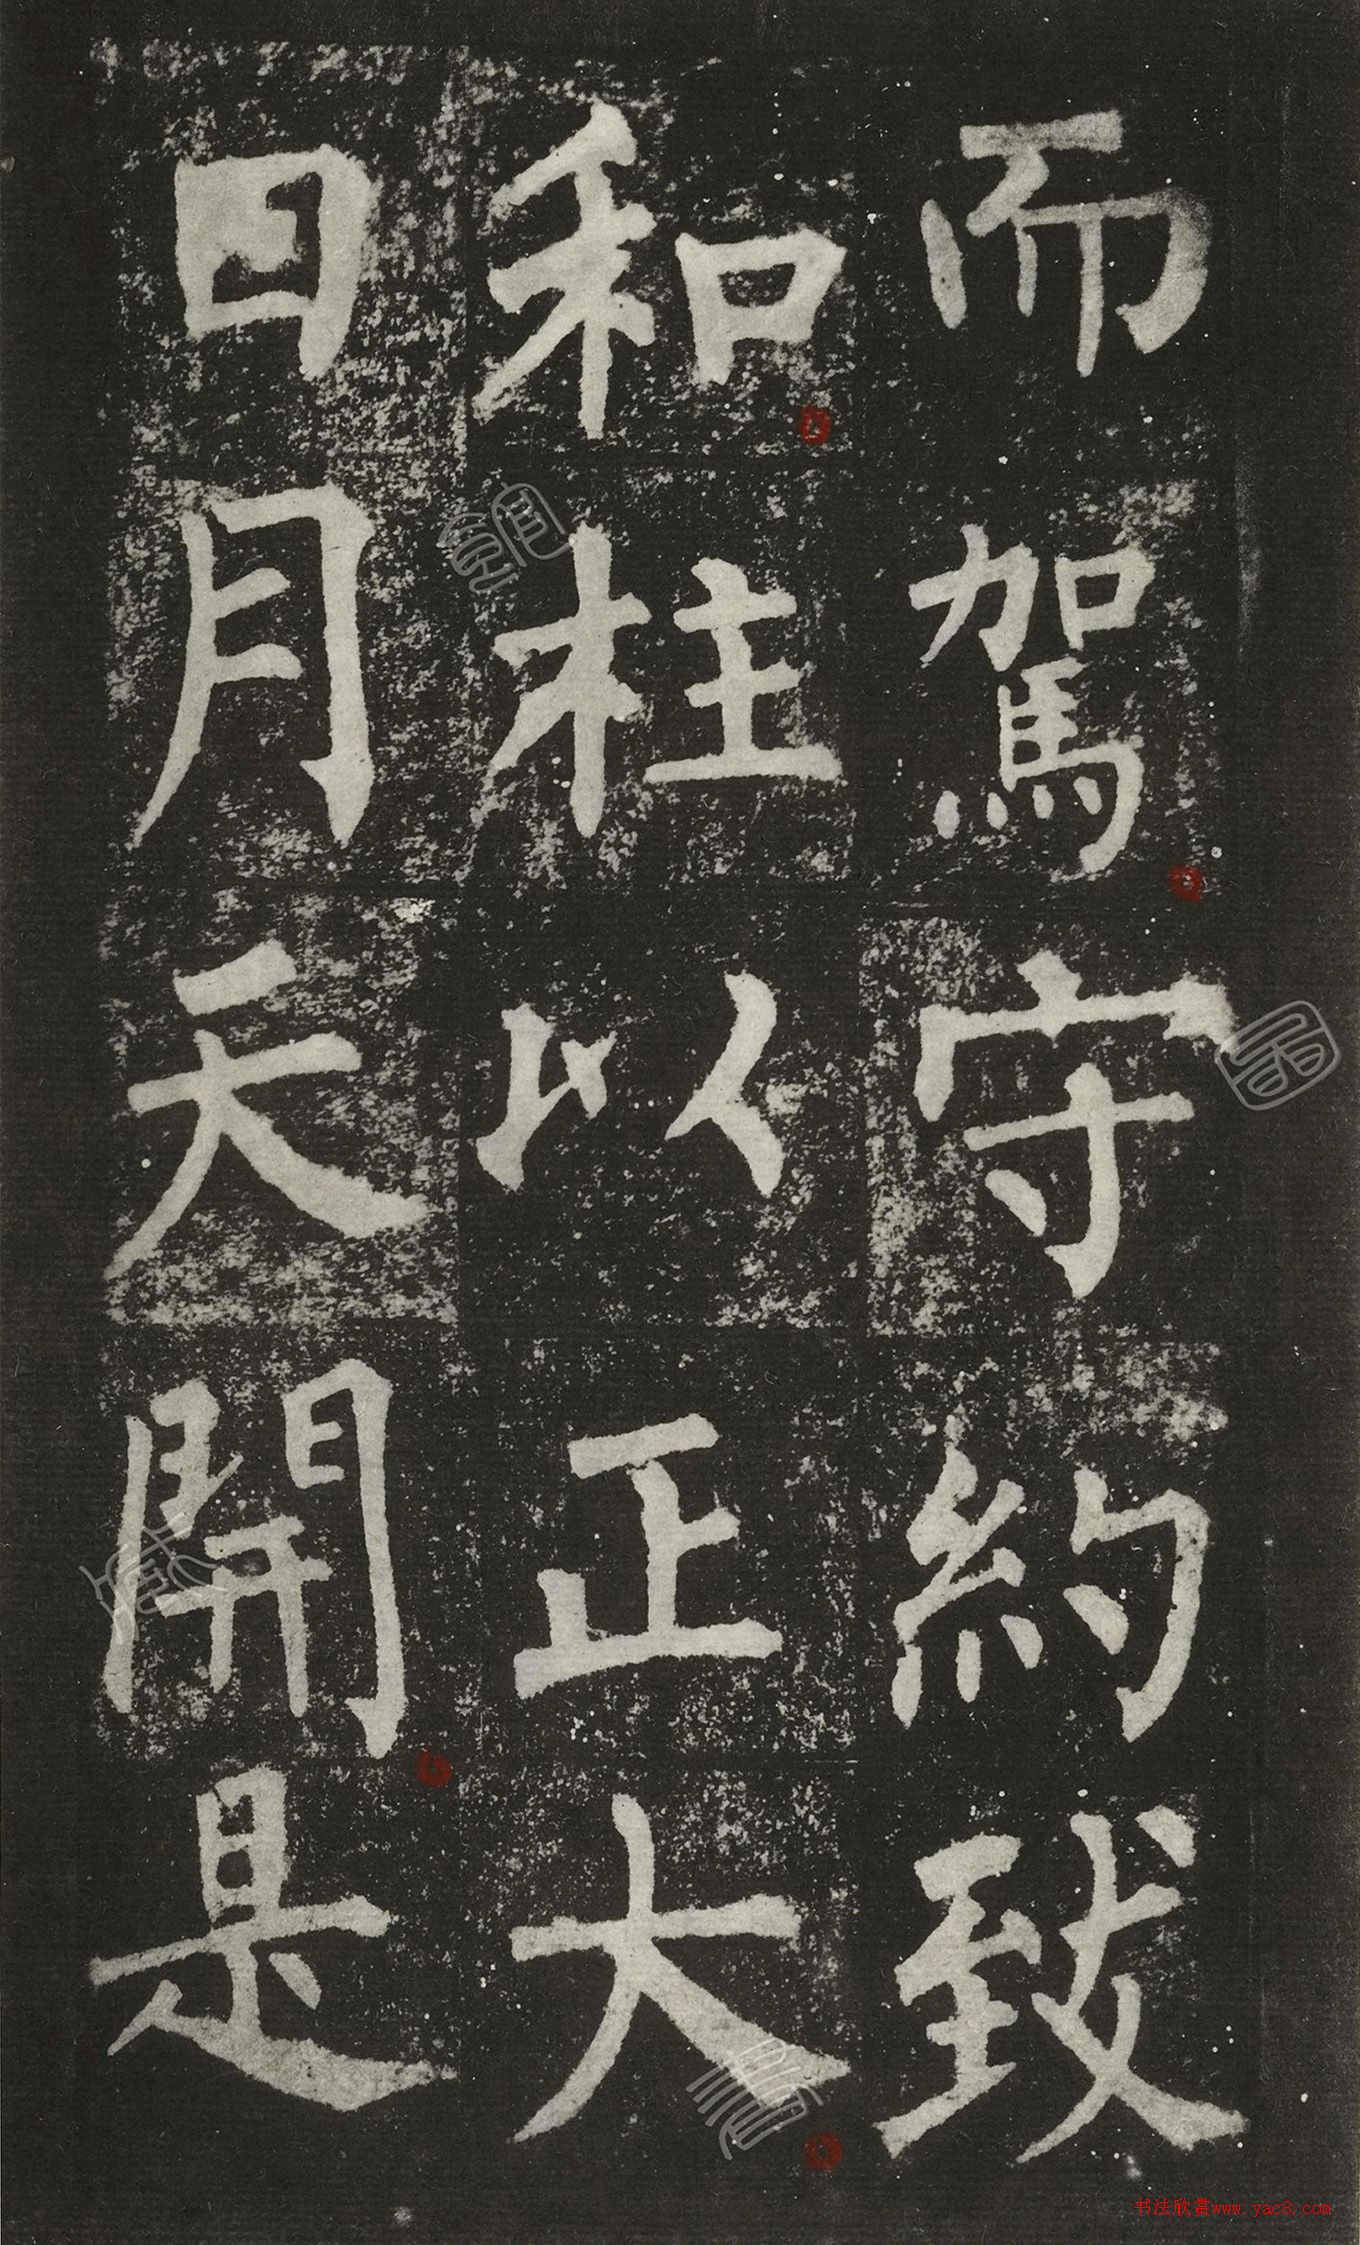 而駕守約致
和柱以正大
日月天開是
书法欣赏www.yac8.com